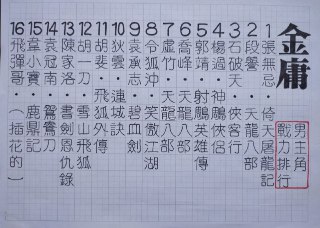 金庸
男主角
戰力排行
1 張無忌·倚天屠龍記
2 段譽·天龍八部
3 石破天·俠客行
4 楊過·神鵰俠侶
5 郭靖·射鵰英雄傳
6 喬峰·天龍八部
7 虛竹·天龍八部
8 令狐沖·笑傲江湖
9 袁承志·碧血劍
10 狄雲·連城訣
11 胡斐·飛狐外傳
12 胡一刀·雪山飛狐
13 陳家洛·書劍恩仇錄
14 袁冠南·鴛鴦刀
15 韋小寶·鹿鼎記
16 飛彈哥·(插花的)